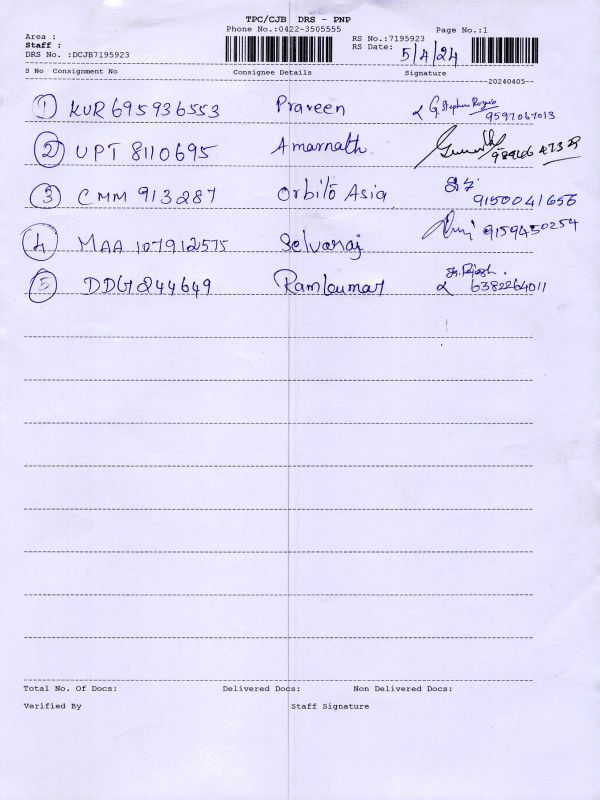 TPC/CJB DRS - PNP
Phone No.:0422-3505555
Page No.:1
Area :
RS No.:7195923
Staff :
RS Date: 5/4/24
DRS No. :DCJB7195923
S No Consignment No Consignee Details Signature
20240405
1 KUR 695936553 Praveen G. Stephen 9597067013
2 UPT 8110695 Amarnath
3 CMM 913287 Orbito Asia 9150041656
4 MAA 107912575 Selvaraj 9159450254
5 DDG 244649 Ramkumar 6382264011
Total No. Of Docs: Delivered Docs: Non Delivered Docs:
Verified By Staff Signature